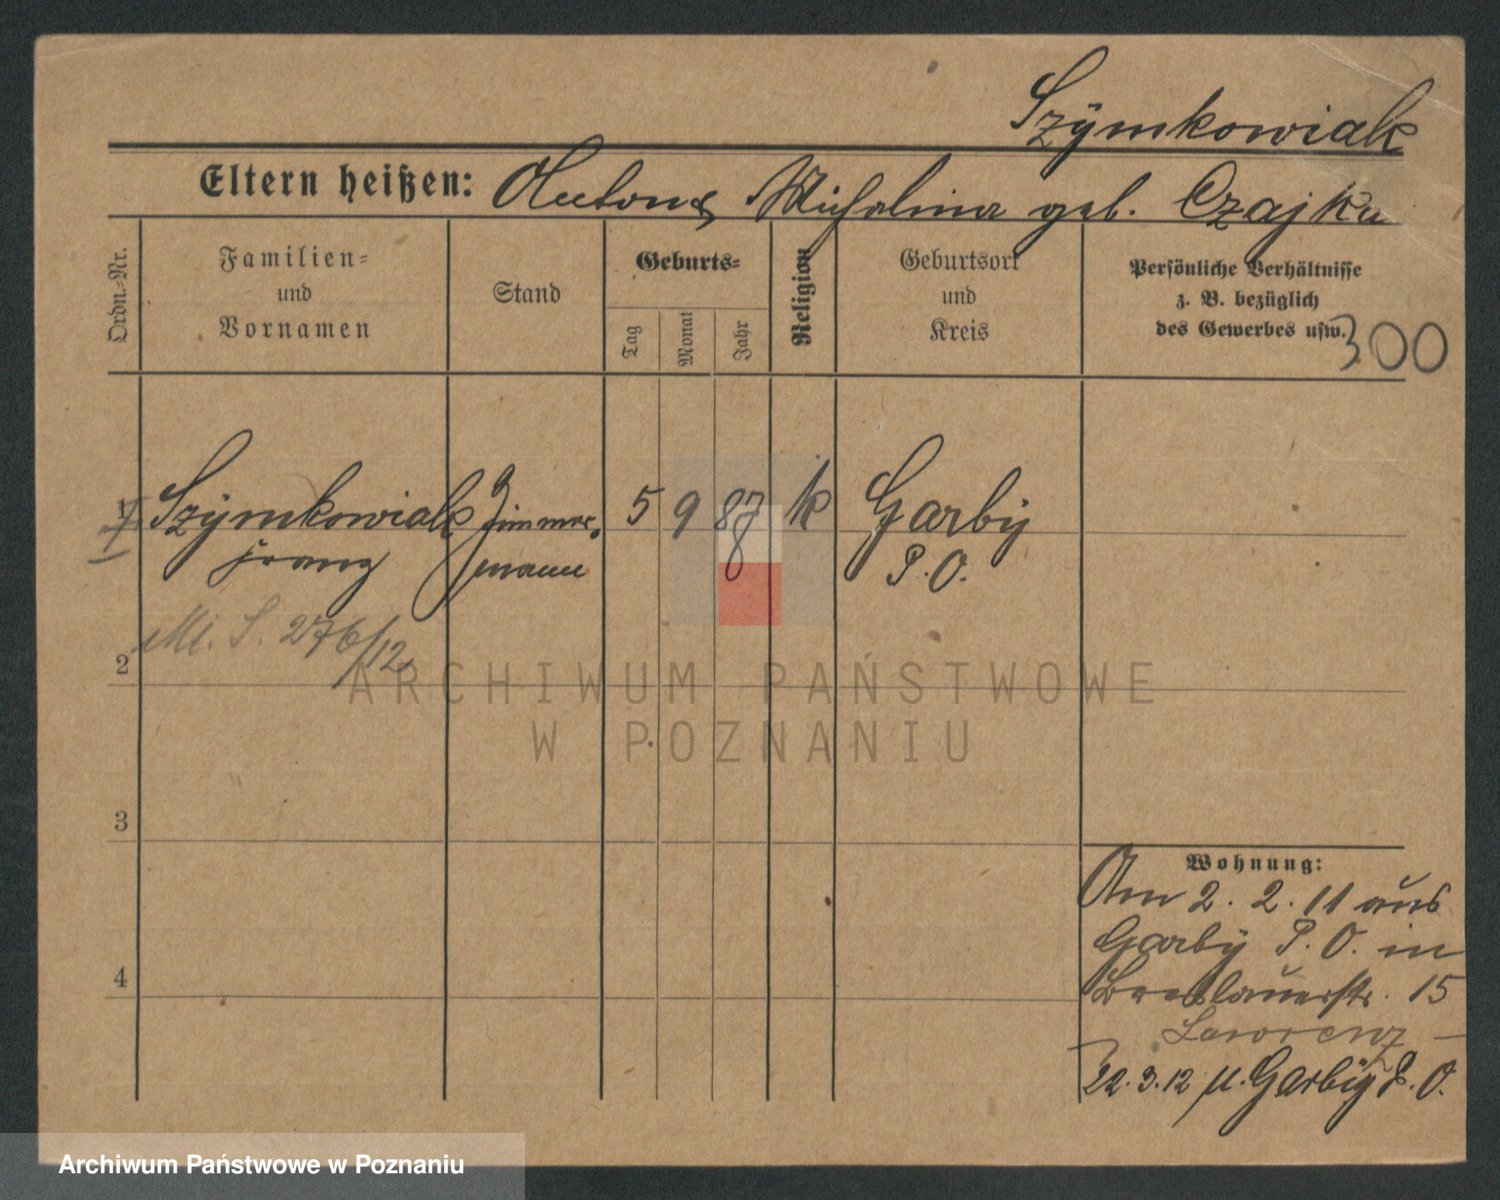 Szÿmkowiak
Eltern heißen: Anton & Michalina geb. Czajka
Ordn.-Nr.
Familien-
und
Vornamen
Stand
Geburts-
Tag
Monat
Jahr
Religion
Geburtsort
und
Kreis
Persönliche Verhältnisse
z. B. bezüglich
des Gewerbes usw.
300
1 Szÿmkowiak Zimmer- 5 9 87 k Garbÿ
Franz mann P. O.
M. S. 276/12
2
3
4
Wohnung:
Am 2. 2. 11 aus
Garbÿ P. O. in
Breslauerstr. 15
Lawrenz
22. 3. 12 n. Garbÿ P. O.
ARCHIWUM PAŃSTWOWE
W POZNANIU
Archiwum Państwowe w Poznaniu